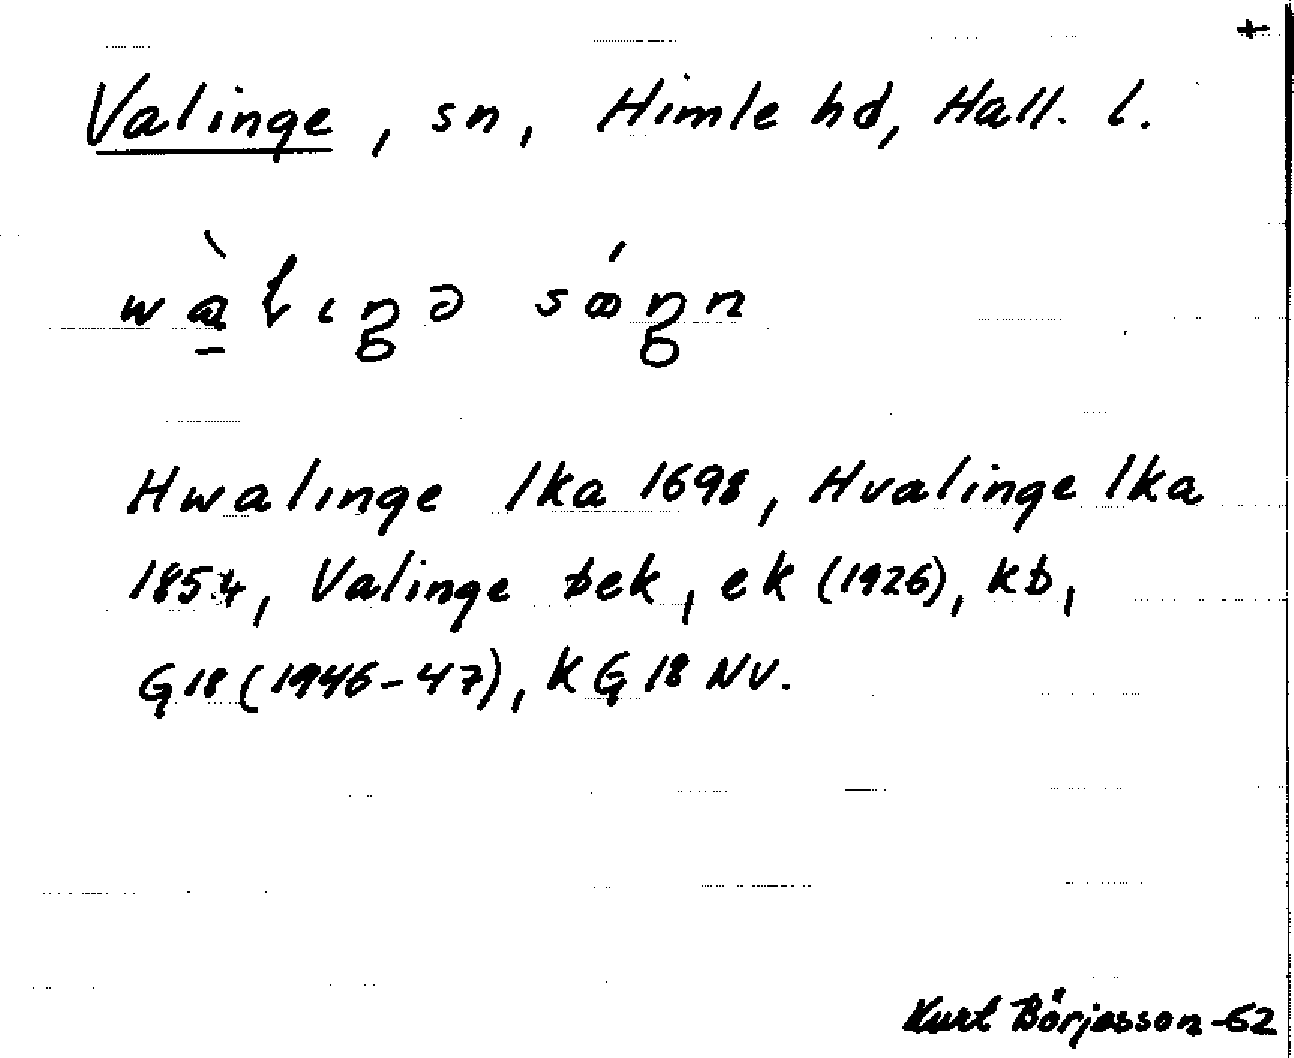 +
Valinge, sn, Himle hd, Hall. l.
Hwalinge lka 1698, Hvalinge lka
1854, Valinge bek, ek (1926), kb,
G18 (1946-47), KG 18 NV.
Kurt Börjesson -62